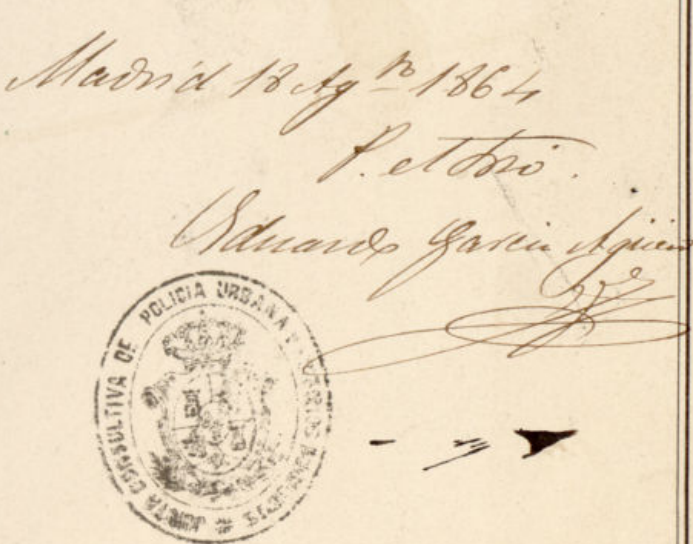 Madrid 18 Ag.to 1864
P. el Srio.
Eduardo Garcia
JUNTA CONSULTIVA DE POLICIA URBANA Y